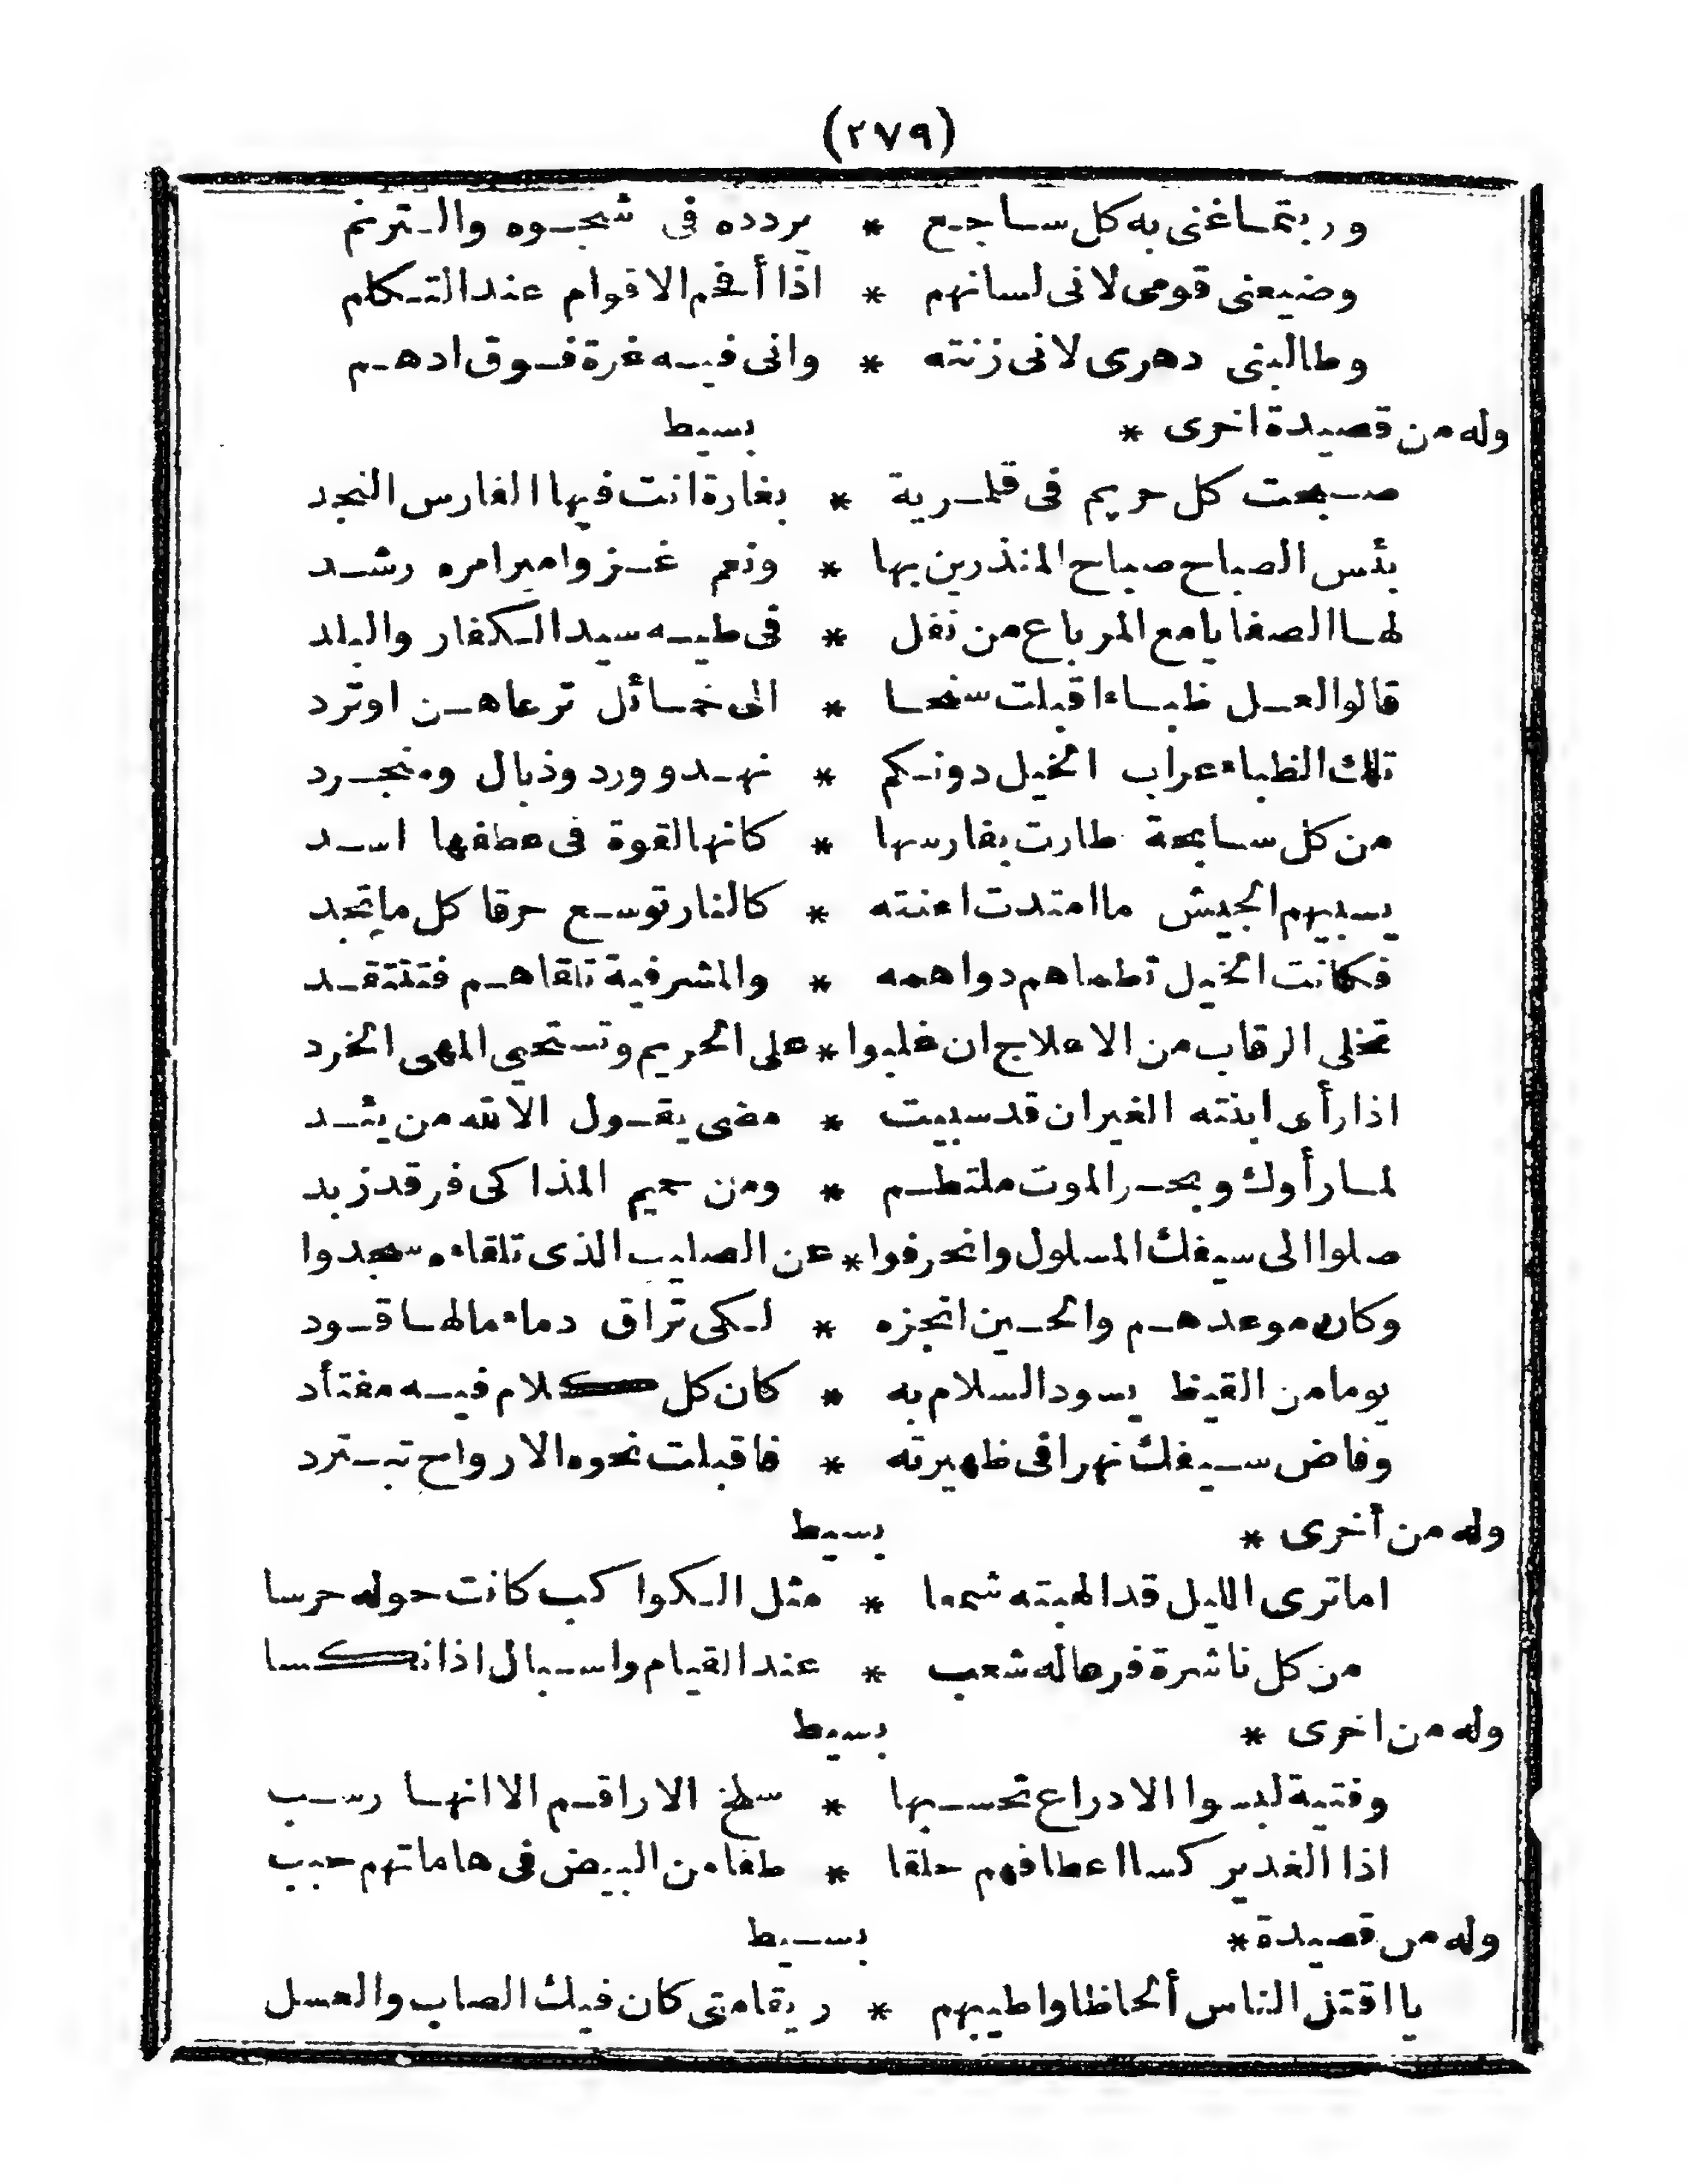 (٢٧٩)
وربتما غنى به كل ساجع * يردده فى شجوه والترنم
وضيعنى قومى لانى لسانهم * اذا أفحم الاقوام عند التكلم
وطالبنى دهرى لانى زنته * وانى فيه غرة فوق ادهم
وله من قصيدة اخرى * بسيط
صبحت كل حريم فى قلمرية * بغارة انت فيها الفارس النجد
بئس الصباح صباح المنذرين بها * ونعم غزوا مير امره رشد
لها الصفايا مع المرباع من نفل * فى طيه سيد الكفار والبلد
قالوا لعل ظباء اقبلت سنحا * الى خمائل ترعاهن اوترد
تلك الظباء عراب الخيل دونكم * نهد وورد وذبال ومنجرد
من كل سابحة طارت بفارسها * كانها لقوة فى عطفها اسد
يسبيهم الجيش ما امتدت اعنته * كالنار توسع حرقا كل ماتجد
فكانت الخيل تطماهم دواهمه * والمشرفية تلقاهم فتنتقد
تخلى الرقاب من الاعلاج ان غلبوا * على الحريم وتستحيى المهى الخرد
اذا رأى ابنته الغيران قد سبيت * مضى يقول الا لله من يئد
لما رأوك وبحر الموت ملتطم * ومن حميم المذاكى فرقد زبد
صلوا الى سيفك المسلول وانحرفوا * عن الصليب الذى تلقاءه سجدوا
وكان موعدهم والحين انجزه * لكى تراق دماء مالها قود
يوما من القيظ يسود السلام به * كان كل كلام فيه مفتأد
وفاض سيفك نهرا فى ظهيرته * فاقبلت نحوه الارواح تبترد
وله من أخرى * بسيط
اما ترى الليل قد الهبته شمعا * مثل الكواكب كانت حوله حرسا
من كل ناشرة فرعا له شعب * عند القيام واسبال اذا نكسا
وله من اخرى * بسيط
وفتية لبسوا الادراع تحسبها * سلخ الاراقم الا انها رسب
اذا الغدير كسا اعطافهم حلقا * طفا من البيض فى هاماتهم حبب
وله من قصيدة * بسيط
يا اقتل الناس ألحاظا واطيبهم * ريقا متى كان فيك الصاب والعسل